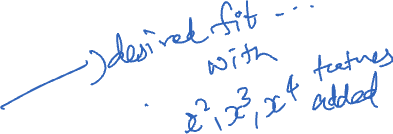 desired fit ...
with
x², x³, x⁴ features
added